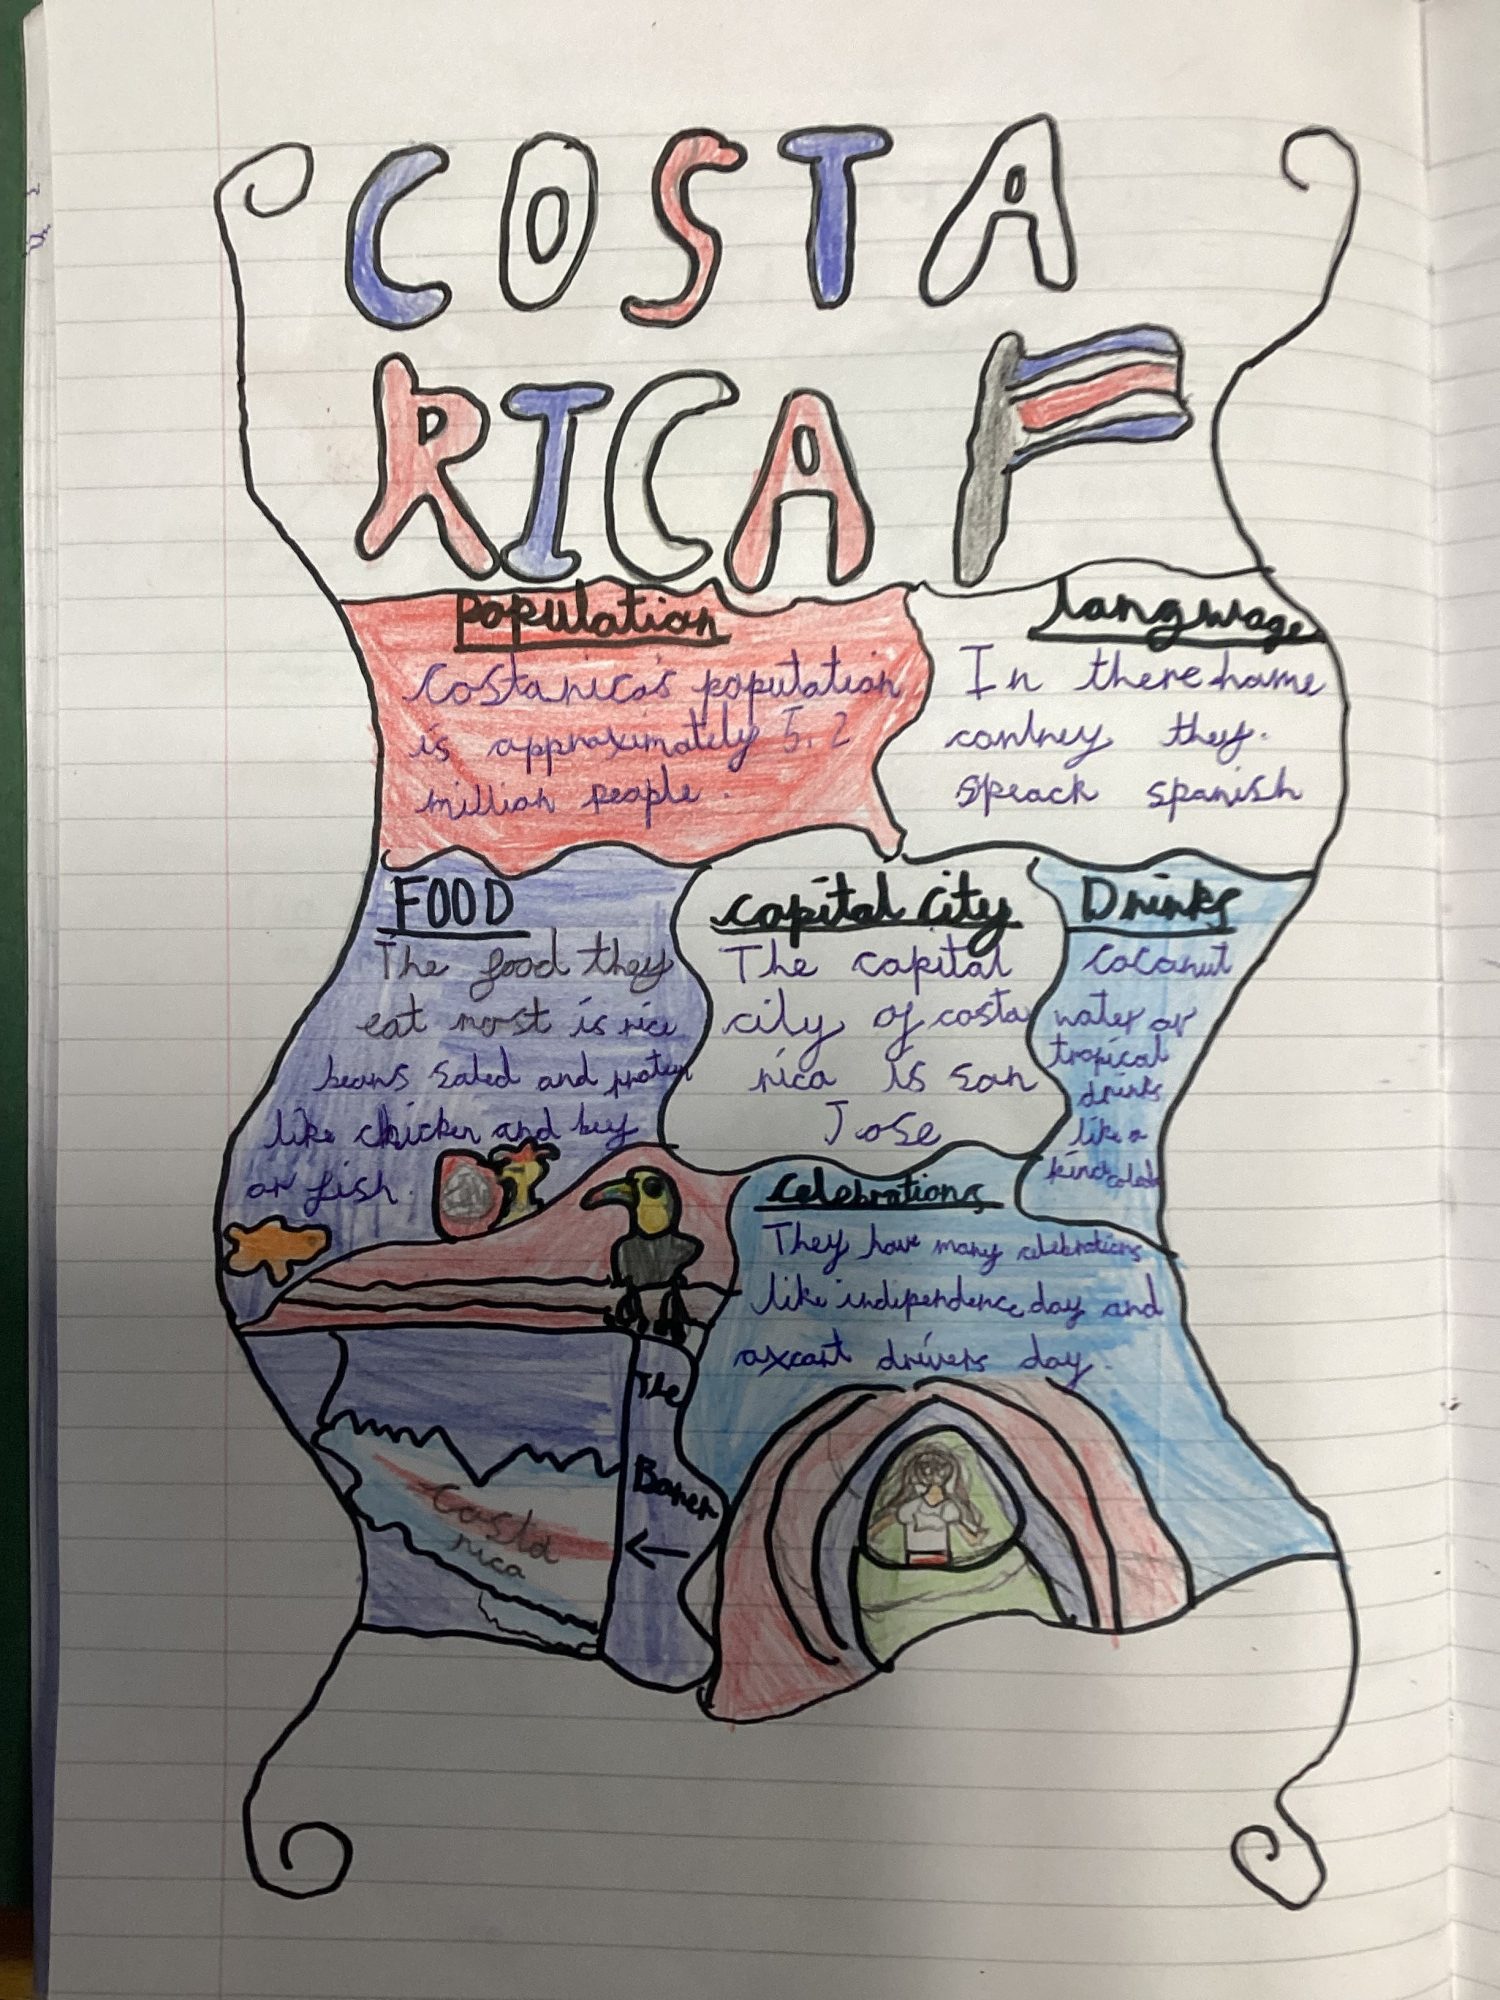 COSTA
RICA
Population
Costa rica's population
is approximately 5.2
million people.
language
In there home
contrey they.
speack spanish
FOOD
The food they
eat most is rice
beans saled and protein
like chicken and
or fish.
capital city
The capital
city of costa
rica is san
Jose
Drinks
coconut
water or
tropical
drinks
like a
celebrations
They have many celebrations
like independence day and
oxcart drivers day.
The
Baner
Costa
rica